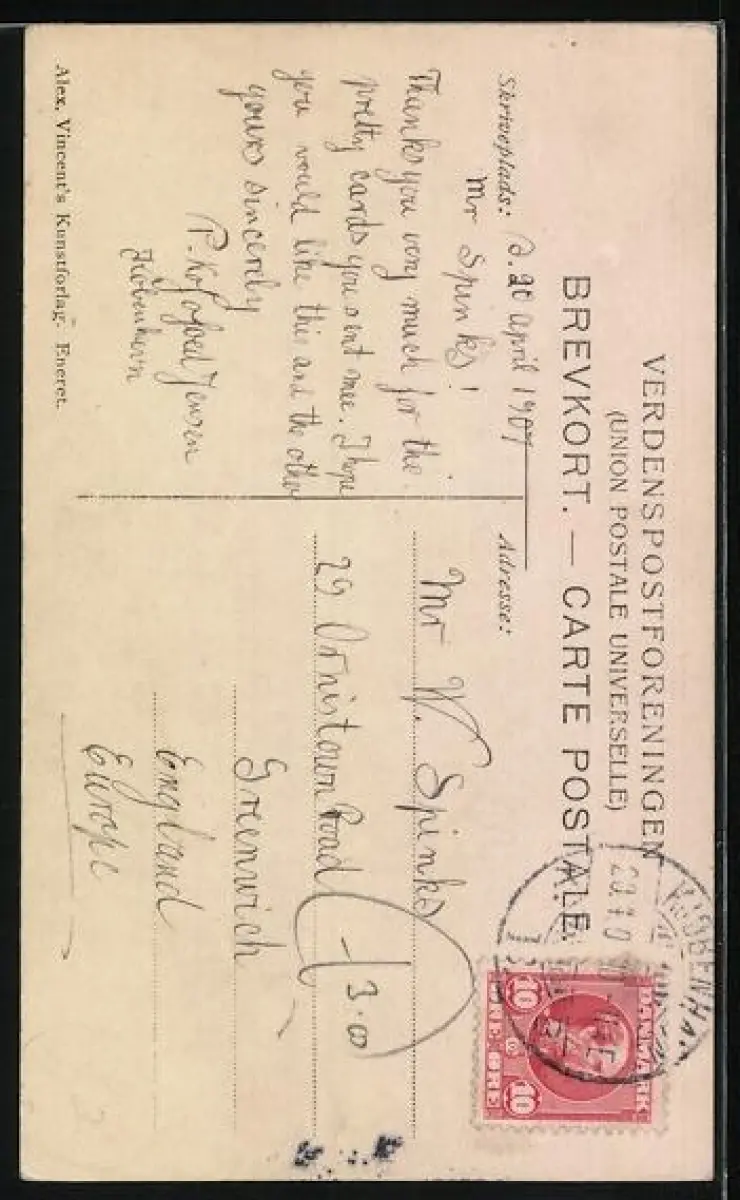 VERDENSPOSTFORENINGEN
(UNION POSTALE UNIVERSELLE)
BREVKORT. — CARTE POSTALE.
Skriveplads:
d. 20 april 1907
Mr Spinks!
Thank you very much for the
pretty cards you sent mee. I hope
you would like this and the other
yours sincerely
P. Kofoed Jensen
Köbenhavn
Alex. Vincent's Kunstforlag. Eneret.
Adresse:
Mr W. Spinks
29 Ornistown Road
Greenwich
England
Europe
3.00
KJØBENHA
DANMARK
10 10
ØRE ØRE